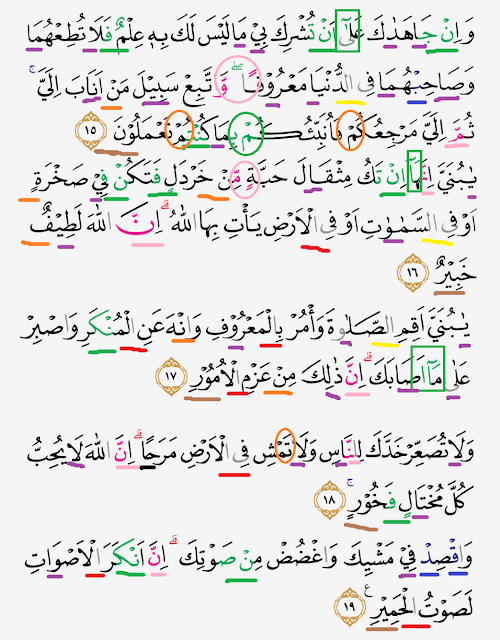 وَاِنْ جَاهَدٰكَ عَلٰٓى اَنْ تُشْرِكَ بِيْ مَا لَيْسَ لَكَ بِهٖ عِلْمٌ فَلَا تُطِعْهُمَا
وَصَاحِبْهُمَا فِى الدُّنْيَا مَعْرُوْفًا ۖ وَّاتَّبِعْ سَبِيْلَ مَنْ اَنَابَ اِلَيَّ ۚ
ثُمَّ اِلَيَّ مَرْجِعُكُمْ فَاُنَبِّئُكُمْ بِمَا كُنْتُمْ تَعْمَلُوْنَ ١٥
يٰبُنَيَّ اِنَّهَآ اِنْ تَكُ مِثْقَالَ حَبَّةٍ مِّنْ خَرْدَلٍ فَتَكُنْ فِيْ صَخْرَةٍ
اَوْ فِى السَّمٰوٰتِ اَوْ فِى الْاَرْضِ يَأْتِ بِهَا اللّٰهُ ۗ اِنَّ اللّٰهَ لَطِيْفٌ
خَبِيْرٌ ١٦
يٰبُنَيَّ اَقِمِ الصَّلٰوةَ وَأْمُرْ بِالْمَعْرُوْفِ وَانْهَ عَنِ الْمُنْكَرِ وَاصْبِرْ
عَلٰى مَآ اَصَابَكَ ۗ اِنَّ ذٰلِكَ مِنْ عَزْمِ الْاُمُوْرِ ١٧
وَلَا تُصَعِّرْ خَدَّكَ لِلنَّاسِ وَلَا تَمْشِ فِى الْاَرْضِ مَرَحًا ۗ اِنَّ اللّٰهَ لَا يُحِبُّ
كُلَّ مُخْتَالٍ فَخُوْرٍ ۚ ١٨
وَاقْصِدْ فِيْ مَشْيِكَ وَاغْضُضْ مِنْ صَوْتِكَ ۗ اِنَّ اَنْكَرَ الْاَصْوَاتِ
لَصَوْتُ الْحَمِيْرِ ۧ ١٩